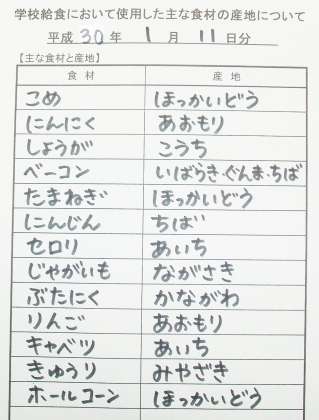 学校給食において使用した主な食材の産地について
平成 30 年 1 月 11 日分
【主な食材と産地】
食材 産地
こめ ほっかいどう
にんにく あおもり
しょうが こうち
ベーコン いばらき・ぐんま・ちば
たまねぎ ほっかいどう
にんじん ちば
セロリ あいち
じゃがいも ながさき
ぶたにく かながわ
りんご あおもり
キャベツ あいち
きゅうり みやざき
ホールコーン ほっかいどう